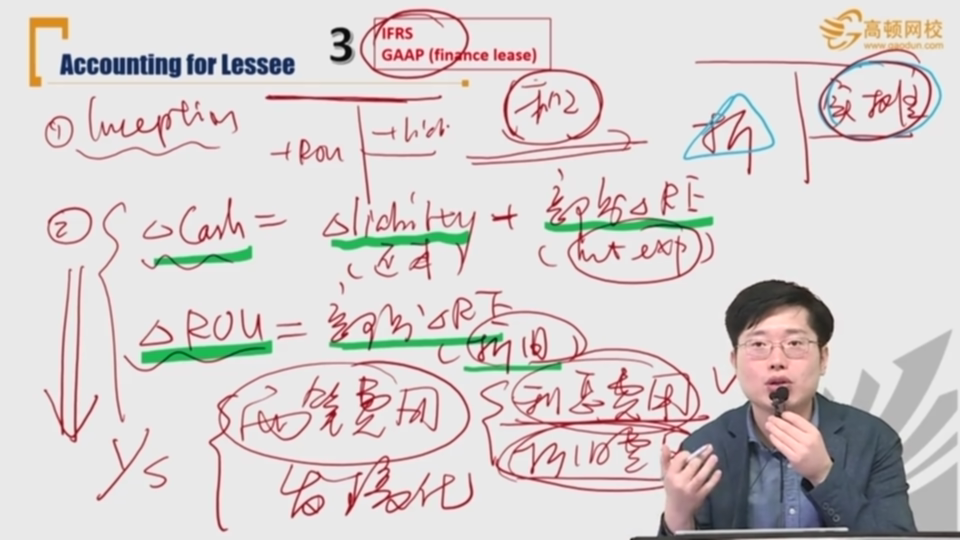 Accounting for Lessee
3
IFRS
GAAP (finance lease)
高顿网校
www.gaodun.com
① Inception
+ROU
② ΔCash = Δliability + 部分ΔRE
(还本) (int exp)
ΔROU = 部分ΔRE
(折旧)
两笔费用
利息费用
折旧费
折